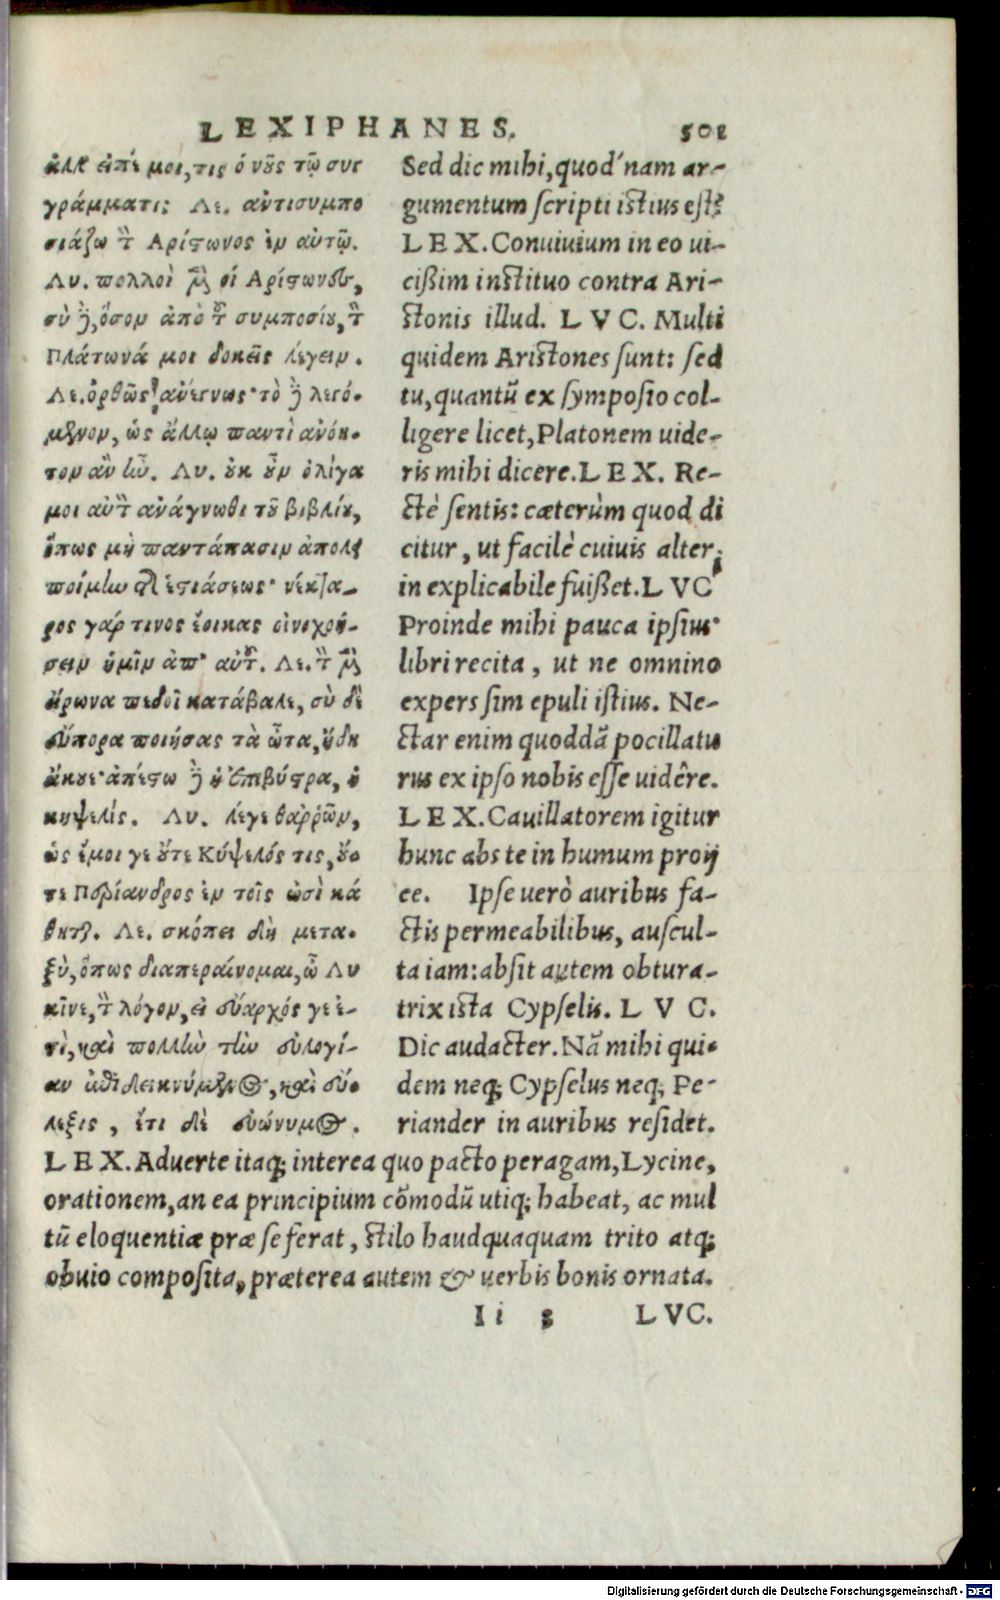 LEXIPHANES. 501
ἀλλ' εἰπέ μοι, τίς ὁ νοῦς τῷ συγ
γράμματι; Λε. ἀντισυμπο
σιάζω τ Ἀρίστωνος ἐν αὐτῷ.
Λυ. πολλοὶ μὲν οἱ Ἀρίστωνες,
σὺ δὲ, ὅσον ἀπὸ τοῦ συμποσίου, τὸν
Πλάτωνά μοι δοκεῖς λέγειν.
Λε. ὀρθῶς ἀνέγνως· τὸ δὲ λεγό-
μενον, ὡς ἄλλῳ παντὶ ἀνόη-
τον ἂν ἦν. Λυ. οὐκ οὖν ὀλίγα
μοι αὐτ ἀνάγνωθι τοῦ βιβλίου,
ὅπως μὴ παντάπασιν ἀπολει
ποίμην τῆς ἑστιάσεως· νέκτα-
ρος γάρ τινος ἔοικας οἰνοχοή-
σειν ἡμῖν ἀπ' αὐτοῦ. Λε. τὸν μὲν
εἴρωνα πεδοῖ κατάβαλε, σὺ δὲ
εὔπορα ποιήσας τὰ ὦτα, ἤδη
ἄκουε· ἀπέστω δὲ ἡ ἐπιβύστρα, ἡ
κυψελίς. Λυ. λέγε θαῤῥῶν,
ὡς ἔμοι γε οὔτε Κύψελός τις, οὔ-
τε Περίανδρος ἐν τοῖς ὠσὶ κά
θηται. Λε. σκόπει δὴ μετα-
ξὺ, ὅπως διαπεραίνομαι, ὦ Λυ
κῖνε, τὸν λόγον, εἰ εὔαρχός γε ἐ-
στὶ, καὶ πολλὴν τὴν εὐλογί-
αν ἐπιδεικνύμενος, καὶ εὔ-
λεξις, ἔτι δὲ εὐώνυμος.
Sed dic mihi, quod'nam ar-
gumentum scripti istius est?
LEX. Conuiuium in eo ui-
cißim instituo contra Ari-
stonis illud. LVC. Multi
quidem Aristones sunt: sed
tu, quantũ ex symposio col-
ligere licet, Platonem uide-
ris mihi dicere. LEX. Re-
ctè sentis: cæterùm quod di
citur, ut facilè cuiuis alteri
in explicabile fuißet. LVC
Proinde mihi pauca ipsius
libri recita, ut ne omnino
expers sim epuli istius. Ne-
ctar enim quoddã pocillatu
rus ex ipso nobis esse uidêre.
LEX. Cauillatorem igitur
hunc abs te in humum proij
ce. Ipse uerò auribus fa-
ctis permeabilibus, auscul-
ta iam: absit autem obtura-
trix ista Cypselis. LVC.
Dic audacter. Nã mihi qui-
dem neq; Cypselus neq; Pe-
riander in auribus residet.
LEX. Aduerte itaq; interea quo pacto peragam, Lycine,
orationem, an ea principium cõmodũ utiq; habeat, ac mul
tũ eloquentiæ præ se ferat, stilo haudquaquam trito atq;
obuio composita, præterea autem & uerbis bonis ornata.
Ii 3 LVC.
Digitalisierung gefördert durch die Deutsche Forschungsgemeinschaft - DFG